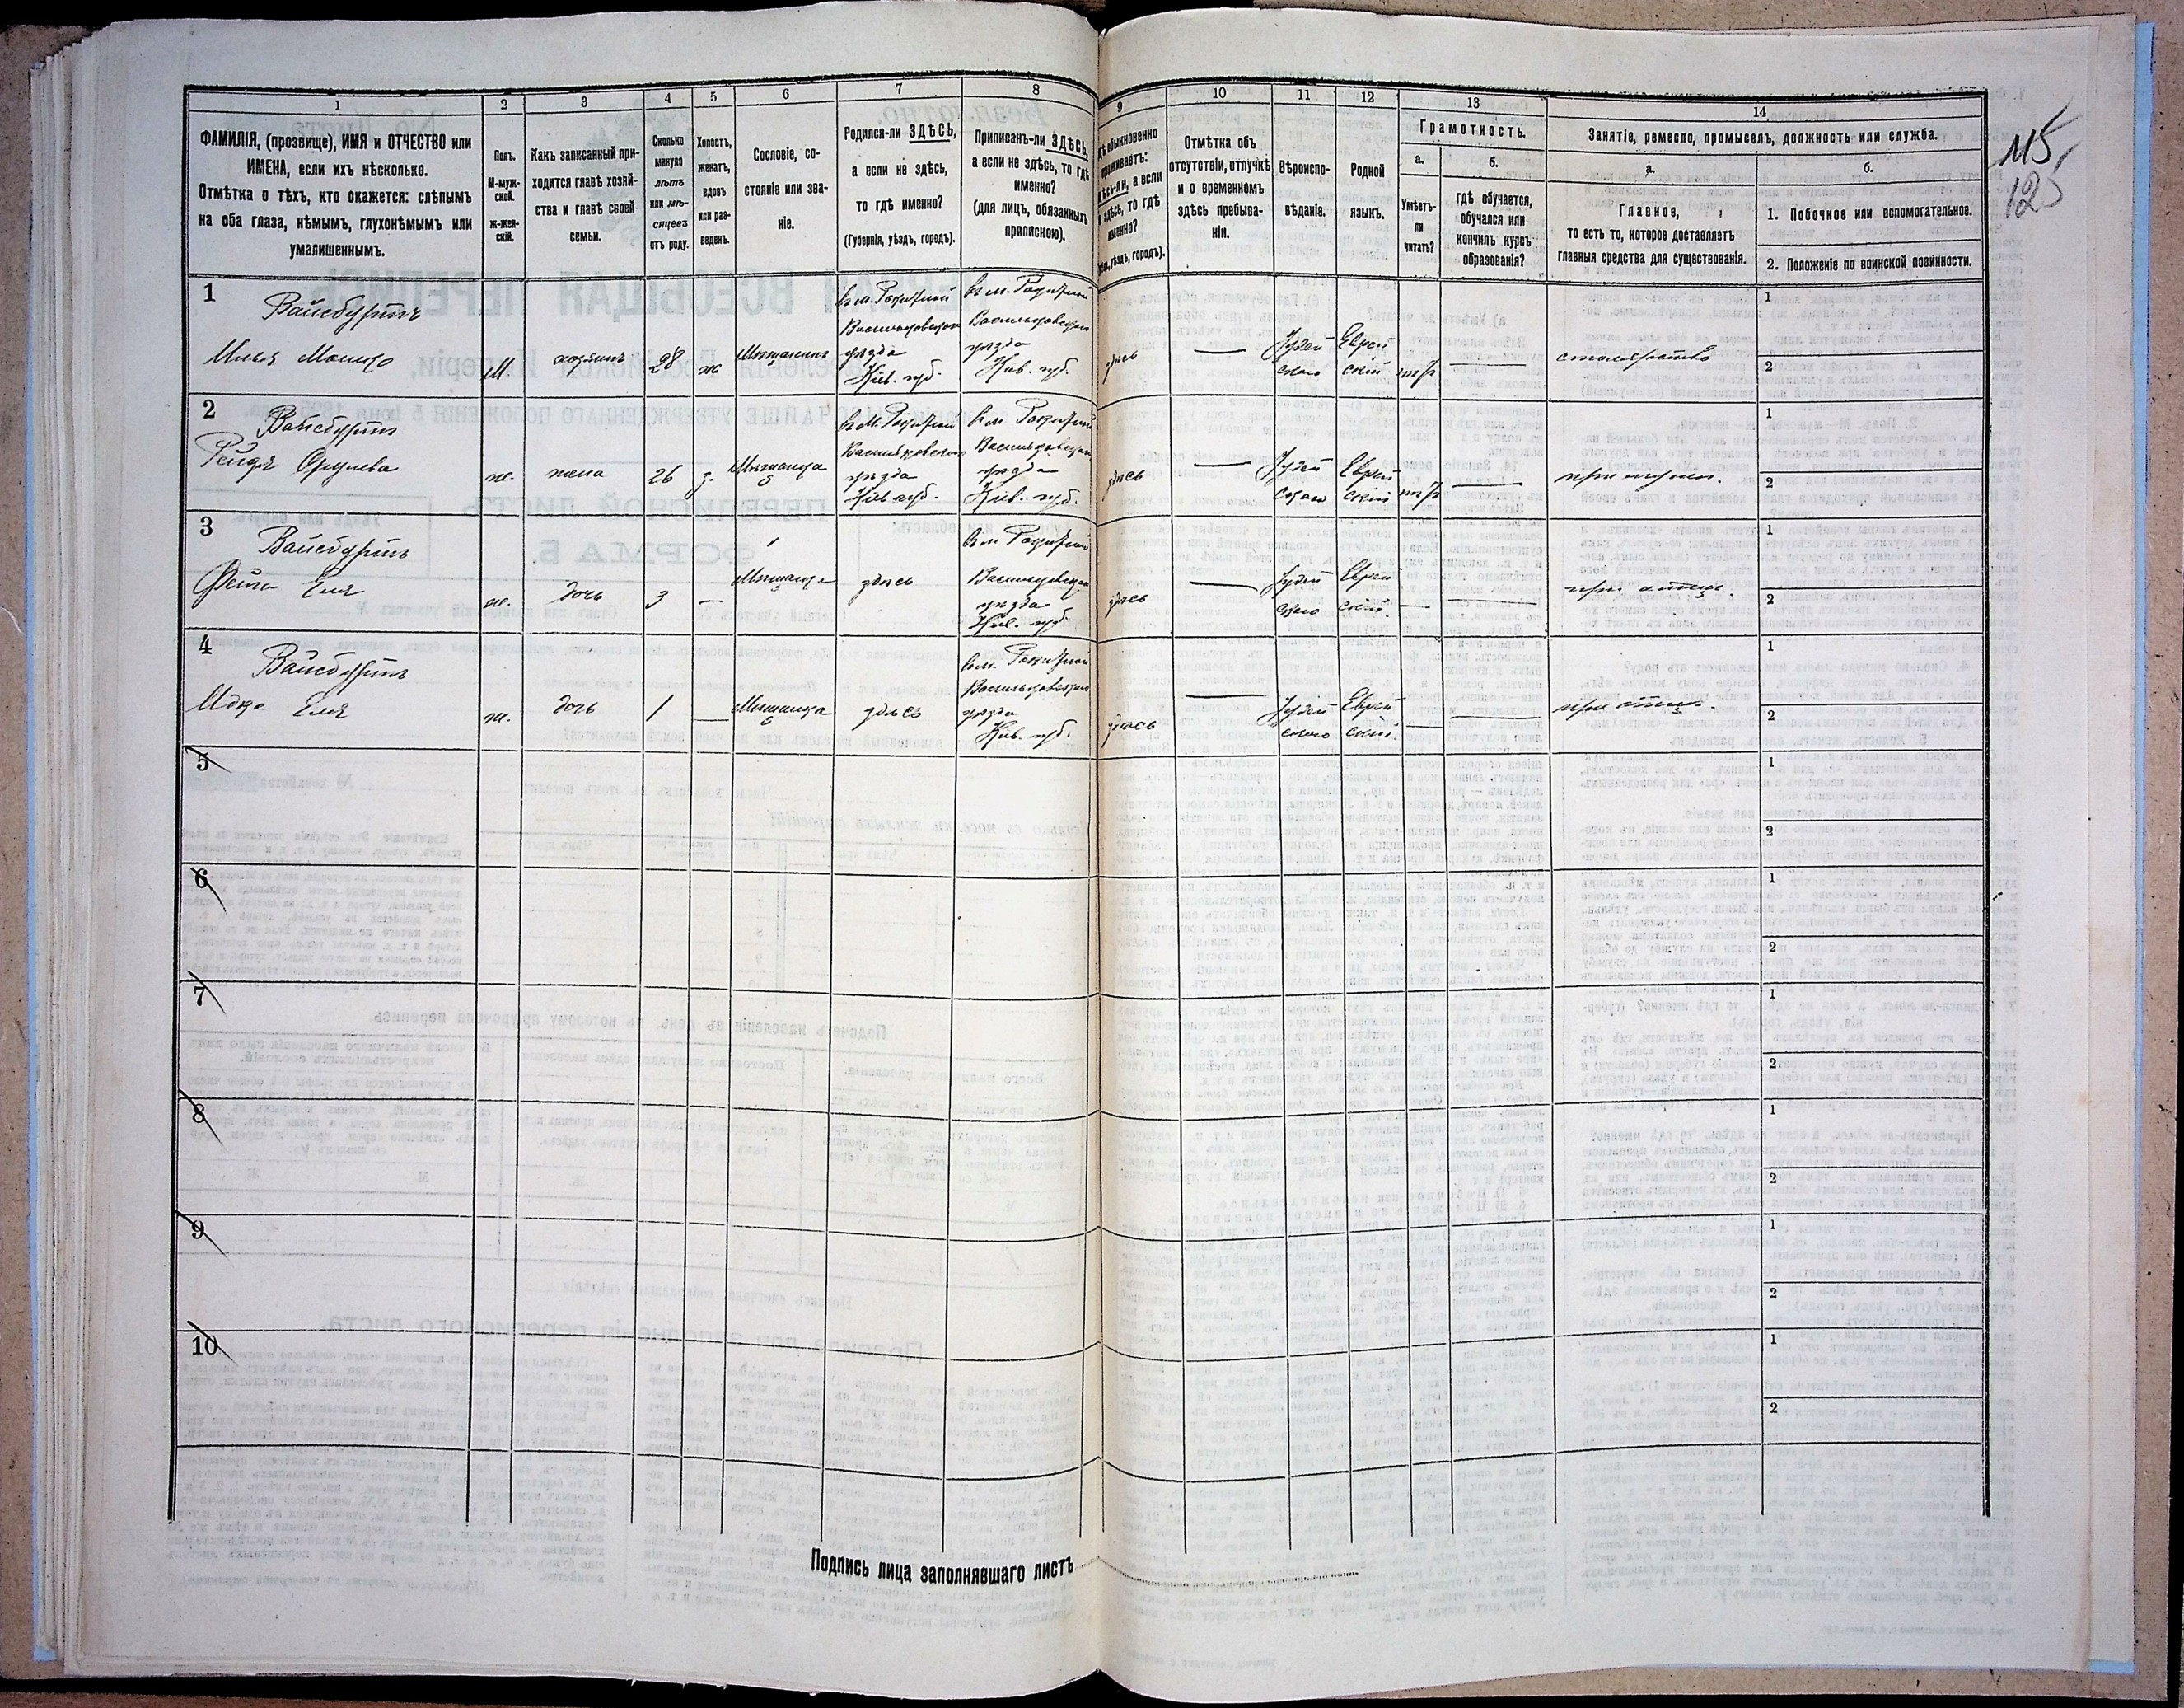 115
125
1
2
3
4
5
6
7
8
9
10
11
12
13
14
ФАМИЛІЯ, (прозвище), ИМЯ и ОТЧЕСТВО или
ИМЕНА, если ихъ нѣсколько.
Отмѣтка о тѣхъ, кто окажется: слѣпымъ
на оба глаза, нѣмымъ, глухонѣмымъ или
умалишеннымъ.
Полъ.
М-муж-
ской.
Ж-жен-
скій.
Какъ записанный при-
ходится главѣ хозяй-
ства и главѣ своей
семьи.
Сколько
минуло
лѣтъ
или мѣ-
сяцевъ
отъ роду.
Холостъ,
женатъ,
вдовъ
или раз-
веденъ.
Сословіе, со-
стояніе или зва-
ніе.
Родился-ли ЗДѢСЬ,
а если не здѣсь,
то гдѣ именно?
(Губернія, уѣздъ, городъ).
Приписанъ-ли ЗДѢСЬ,
а если не здѣсь, то гдѣ
именно?
(для лицъ, обязанныхъ
припискою).
обыкновенно
проживаетъ:
а если
здѣсь, то гдѣ
именно?
уѣздъ, городъ).
Отмѣтка объ
отсутствіи, отлучкѣ
и о временномъ
здѣсь пребыва-
ніи.
Вѣроиспо-
вѣданіе.
Родной
языкъ.
Грамотность.
а.
Умѣетъ-
ли
читать?
б.
гдѣ обучается,
обучался или
кончилъ курсъ
образованія?
Занятіе, ремесло, промыселъ, должность или служба.
а.
Главное,
то есть то, которое доставляетъ
главныя средства для существованія.
б.
1. Побочное или вспомогательное.
2. Положеніе по воинской повинности.
1
Вайсбургъ
М
хозяинъ
28
ж
Мѣщанинъ
въ м. Рокитной
Васильковскаго
уѣзда
Кіев. губ.
въ м. Рокитной
Васильковскаго
уѣзда
Кіев. губ.
здѣсь
—
Іудей
скаго
Еврей
скій
—
столярство
1
2
2
Вайсбургъ
ж.
жена
26
з.
Мѣщанка
въ м. Рокитной
Васильковскаго
уѣзда
Кіев губ.
въ м Рокитной
Васильковскаго
уѣзда
Кіев. губ.
здѣсь
—
Іудей
скаго
Еврей
скій
—
при мужѣ.
1
2
3
Вайсбургъ
ж.
дочь
3
—
Мѣщанка
здѣсь
въ м Рокитной
Васильковскаго
уѣзда
Кіев. губ.
здѣсь
—
Іудей
скаго
Еврей
скій.
—
—
при отцѣ.
1
2
4
Вайсбургъ
ж.
дочь
1
—
Мѣщанка
здѣсь
въ м. Рокитной
Васильковскаго
уѣзда
Кіев. губ.
здѣсь
—
Іудей
скаго
Еврей
скій.
—
—
при отцѣ.
1
2
5
1
2
6
1
2
7
1
2
8
1
2
9
1
2
10
1
2
Подпись лица заполнявшаго листъ